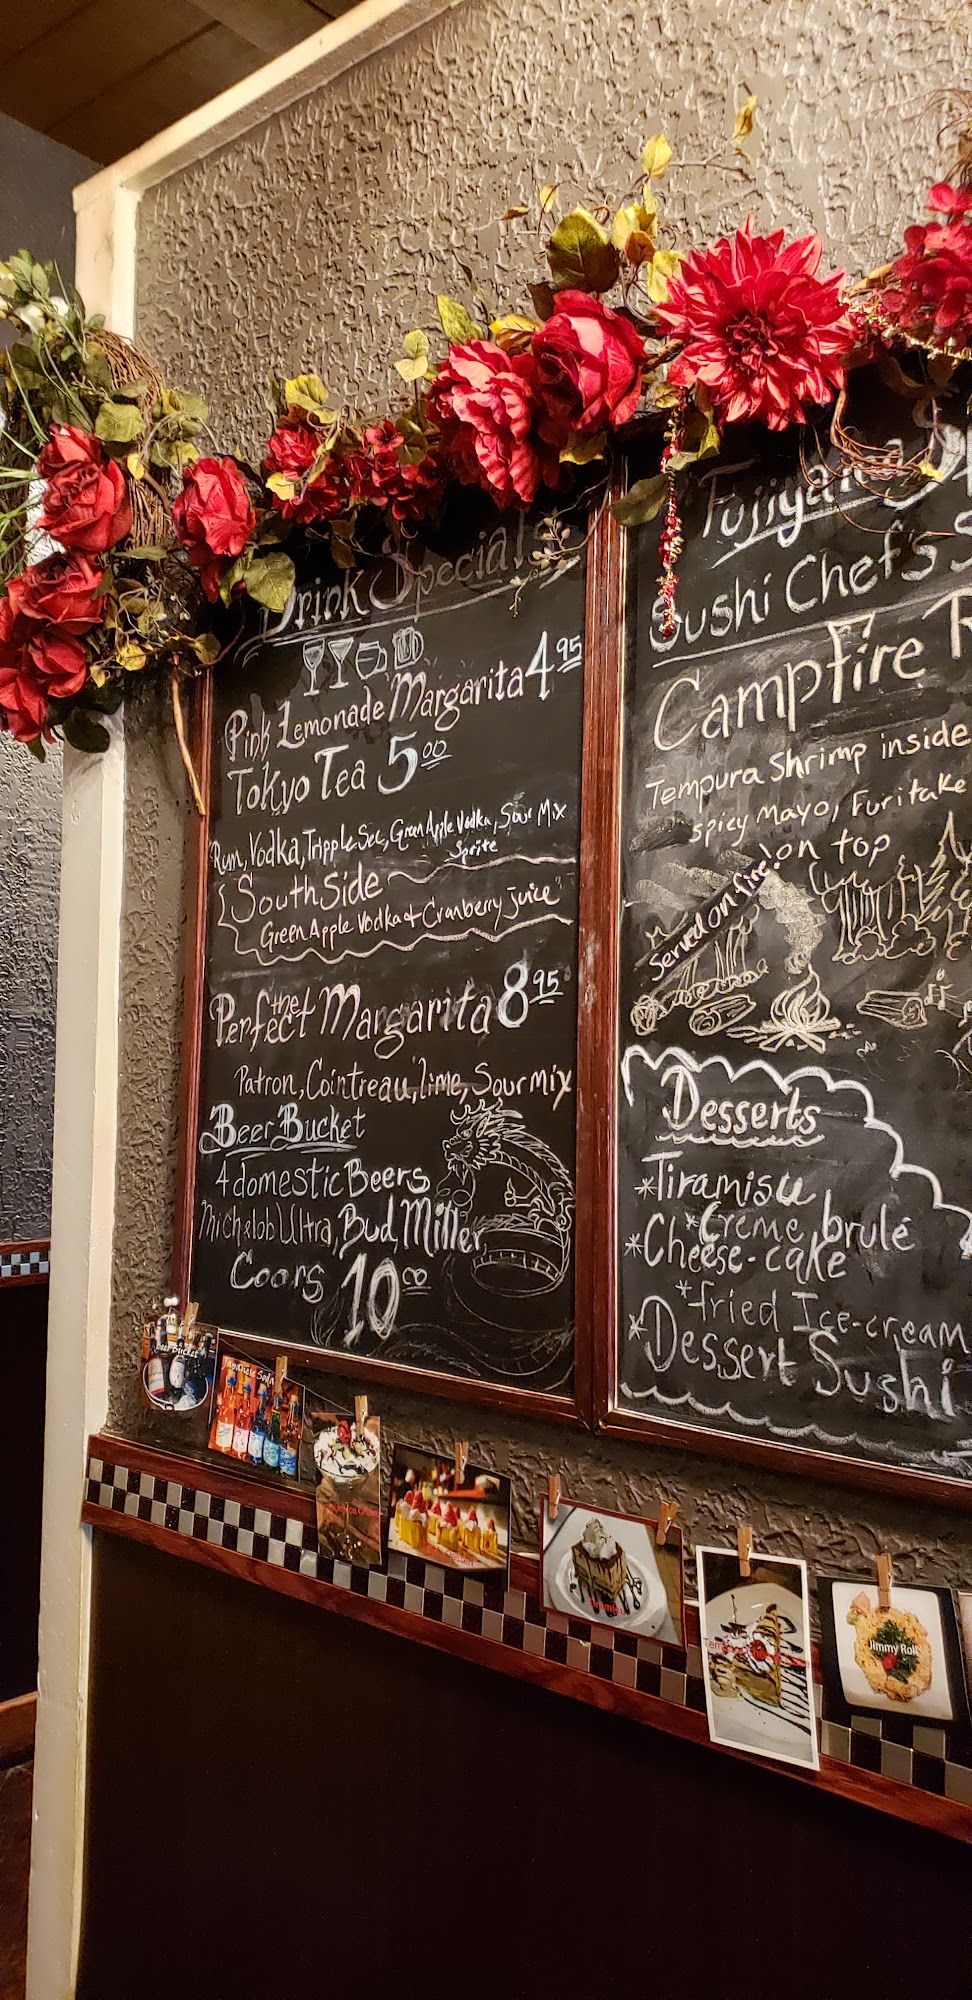 Drink Specials
Pink Lemonade Margarita 4 95
Tokyo Tea 5 00
Rum, Vodka, Tripple Sec, Green Apple Vodka, Sour Mix
Sprite
South Side
Green Apple Vodka & Cranberry juice
Perfect the Margarita 8 95
Patron, Cointreau, lime, Sour mix
Beer Bucket
4 domestic Beers
Michelob Ultra, Bud, Miller,
Coors 10 00
Sushi Chef's
Campfire
Tempura Shrimp inside
spicy Mayo, Furitake
on top
Served on fire!
Desserts
*Tiramisu
*Creme brulé
*Cheese-cake
*fried Ice-cream
*Dessert Sushi
Beer Bucket
Japanese Soda
Tiramisu
Jimmy Roll